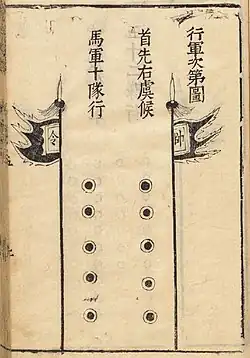 行軍次第圖
首先右虞候
馬軍十隊行
帥
令